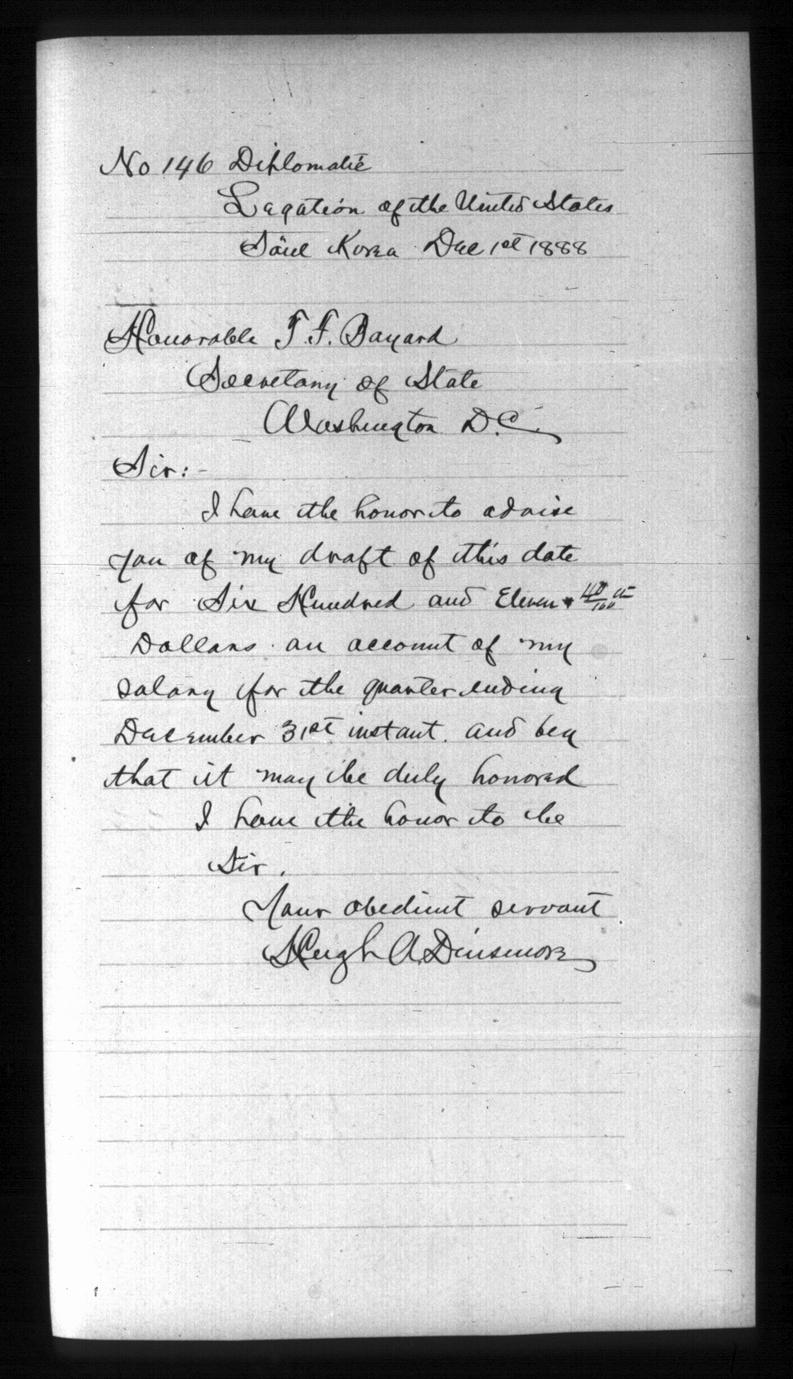 No 146 Diplomatic
Legation of the United States
Söul Korea Dec 1st 1888
Honorable T. F. Bayard
Secretary of State
Washington D.C.
Sir:-
I have the honor to advise
you of my draft of this date
for Six Hundred and Eleven & 40/100
Dollars on account of my
salary for the quarter ending
December 31st instant. and beg
that it may be duly honored
I have the honor to be
Sir,
Your obedient servant
Hugh A. Dinsmore